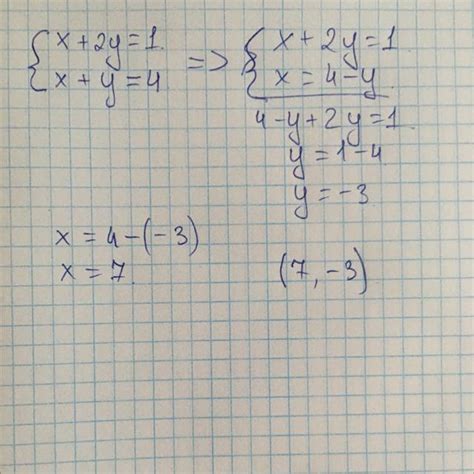 x + 2y = 1 => x + 2y = 1
x + y = 4 x = 4 - y
4 - y + 2y = 1
y = 1 - 4
y = -3
x = 4 - (-3)
x = 7 (7, -3)